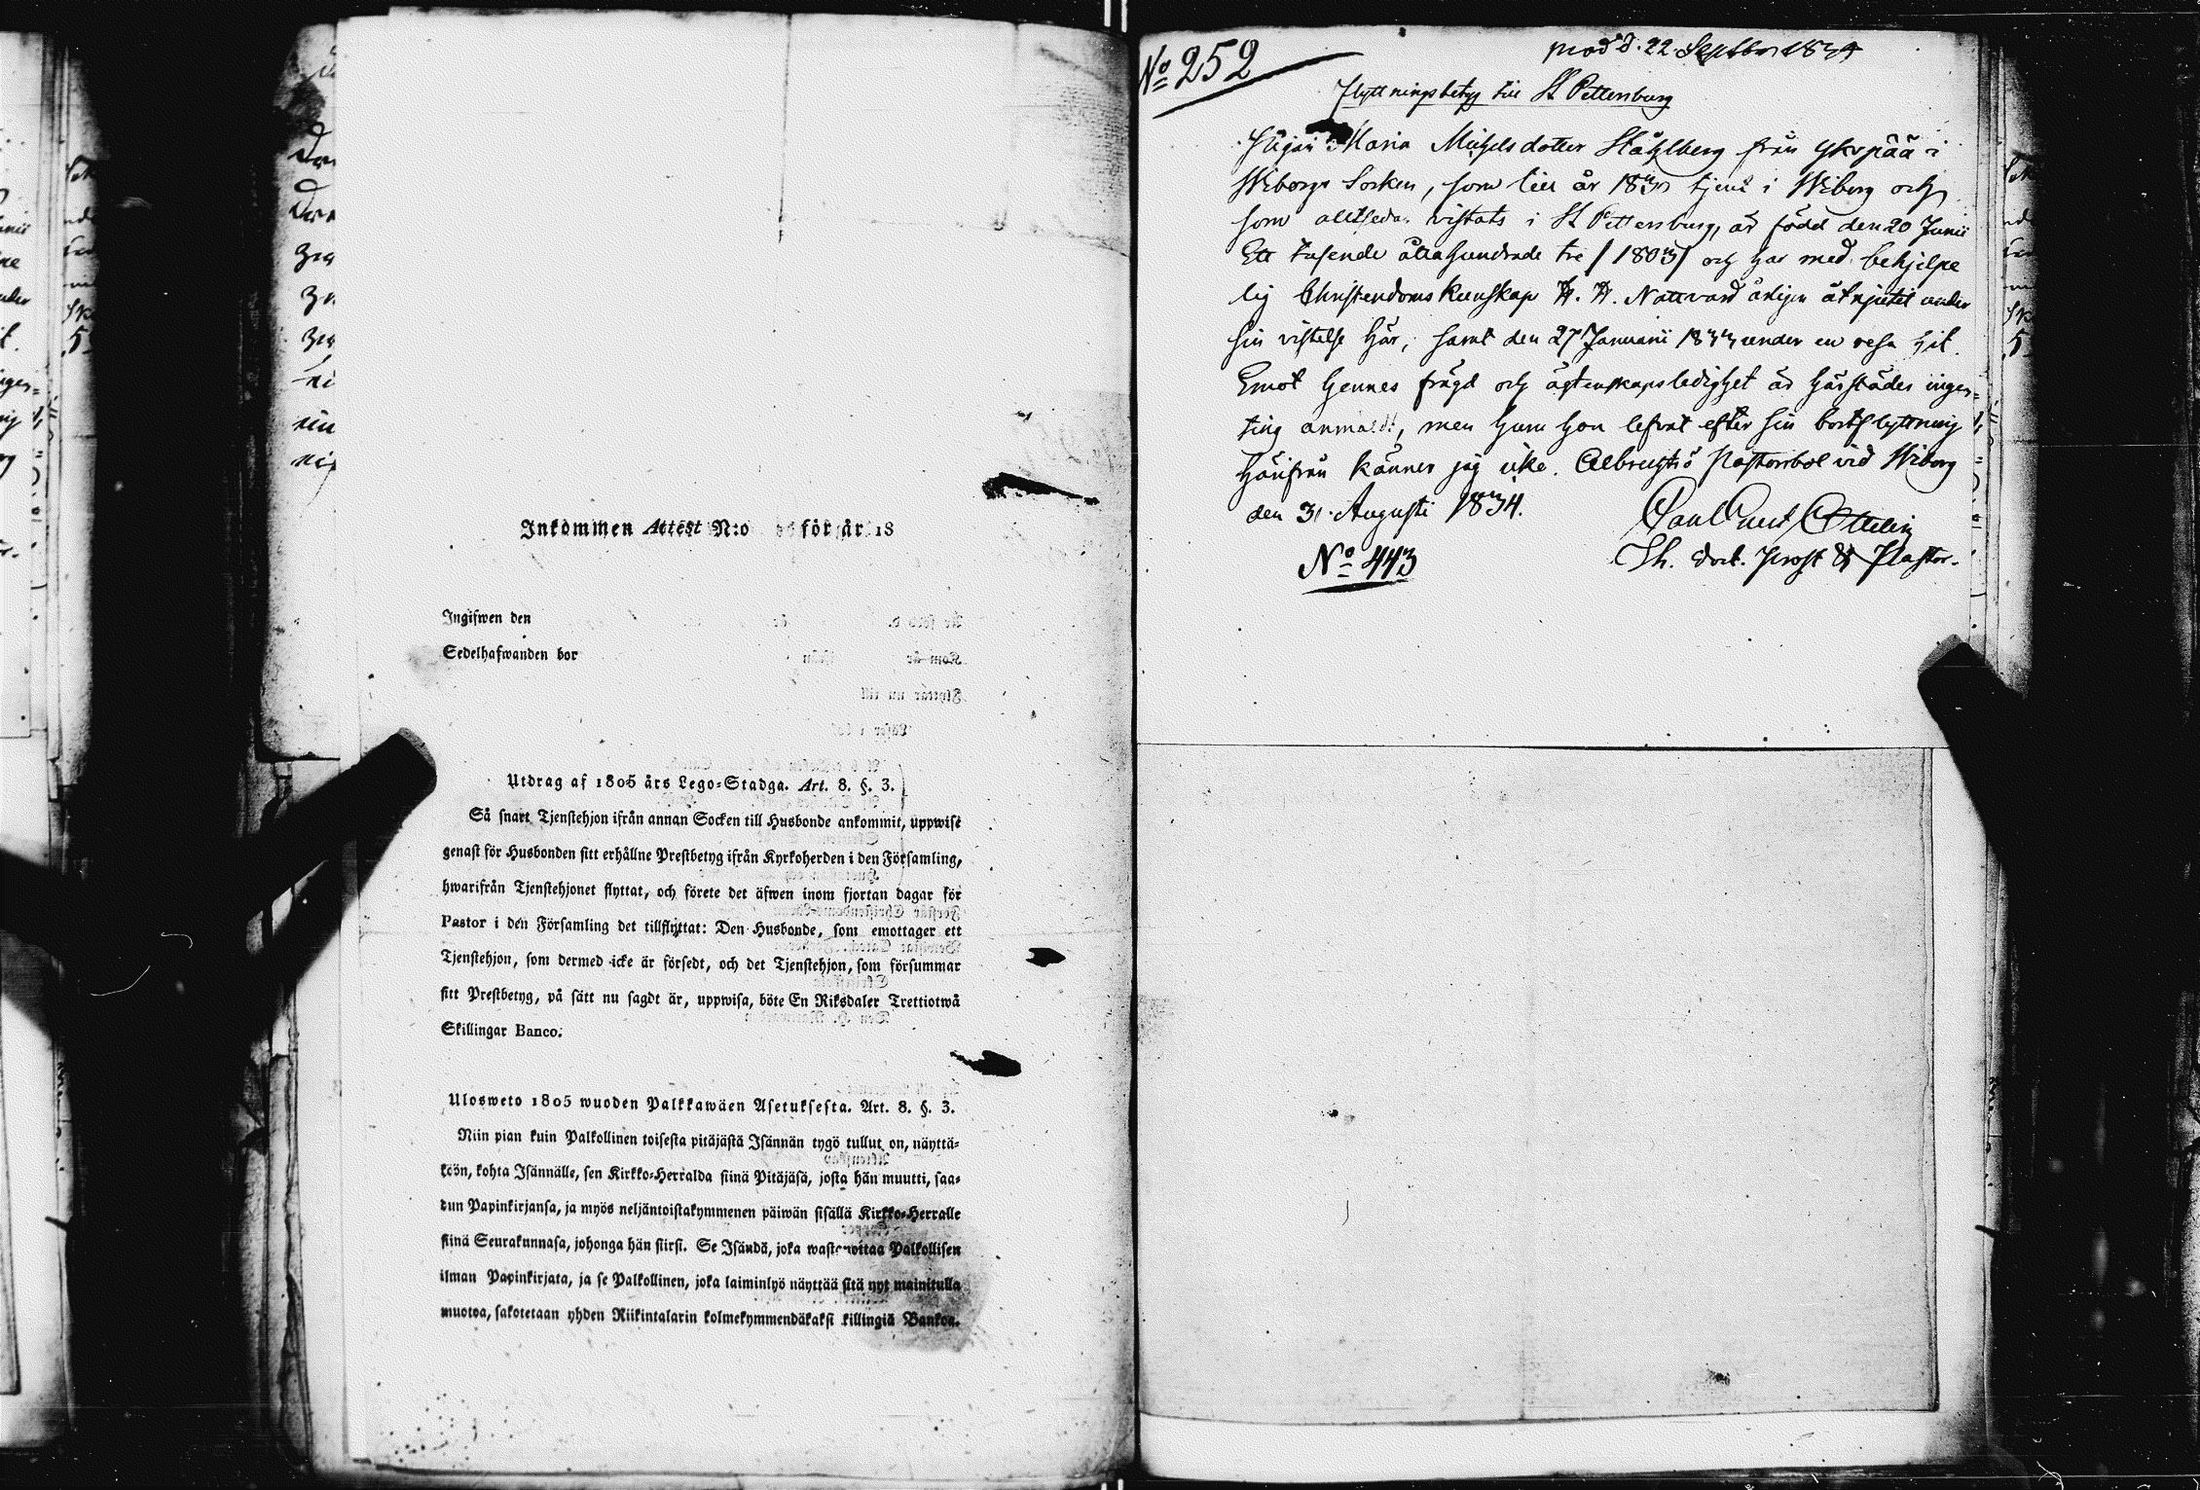 Inkommen Attest N:o för år 18
Ingifwen den
Sedelhafwanden bor
Utdrag af 1805 års Lego-Stadga. Art. 8. §. 3.
Så snart Tjenstehjon ifrån annan Socken till Husbonde ankommit, uppwise
genast för Husbonden sitt erhållne Prestbetyg ifrån Kyrkoherden i den Församling,
hwarifrån Tjenstehjonet flyttat, och förete det äfwen inom fjorton dagar för
Pastor i den Församling det tillflyttat: Den Husbonde, som emottager ett
Tjenstehjon, som dermed icke är försedt, och det Tjenstehjon, som försummar
sitt Prestbetyg, på sätt nu sagdt är, uppwisa, böte En Riksdaler Trettiotwå
Skillingar Banco.
Ulosweto 1805 wuoden Palkkawäen Asetuksesta. Art. 8. §. 3.
Niin pian kuin Palkollinen toisesta pitäjästä Isännän tygö tullut on, näyttä-
köön, kohta Isännälle, sen Kirkko-Herralda siinä Pitäjäsä, josta hän muutti, saa-
dun Papinkirjansa, ja myös neljäntoistakymmenen päiwän sisällä Kirkko-Herralle
siinä Seurakunnasa, johonga hän siirsi. Se Isändä, joka wastanottaa Palkollisen
ilman Papinkirjata, ja se Palkollinen, joka laiminlyö näyttää sitä nyt mainitulla
muotoa, sakotetaan yhden Riikintalarin kolmekymmendäkaksi killingiä Bankoa.
No 252
prod. d. 22 Septbr 1834
Flyttningsbetyg till St Pettersburg
Pigan Maria Michelsdotter Stählberg från Ykspää i
Wiborgs Socken, som till år 1830 tjent i Wiborg och
som alltsedan vistats i St Pettersburg, är född den 20 Junii
Ett tusende åttahundrade tre /1803/ och har med behjelpe
lig Christendoms kunskap H. H. Nattvard årligen åtnjutit under
sin vistelse här, samt den 27 Januarii 1833 under en resa hit.
Emot hennes frägd och ägtenskapsledighet är härstädes ingen-
ting anmäldt, men huru hon lefvat efter sin bortflyttning
härifrån känner jag icke. Albrechtsö Pastorsbol vid Wiborg
den 31 Augusti 1834.
Ottelin
Th. Doct. Prost & Pastor.
No 443